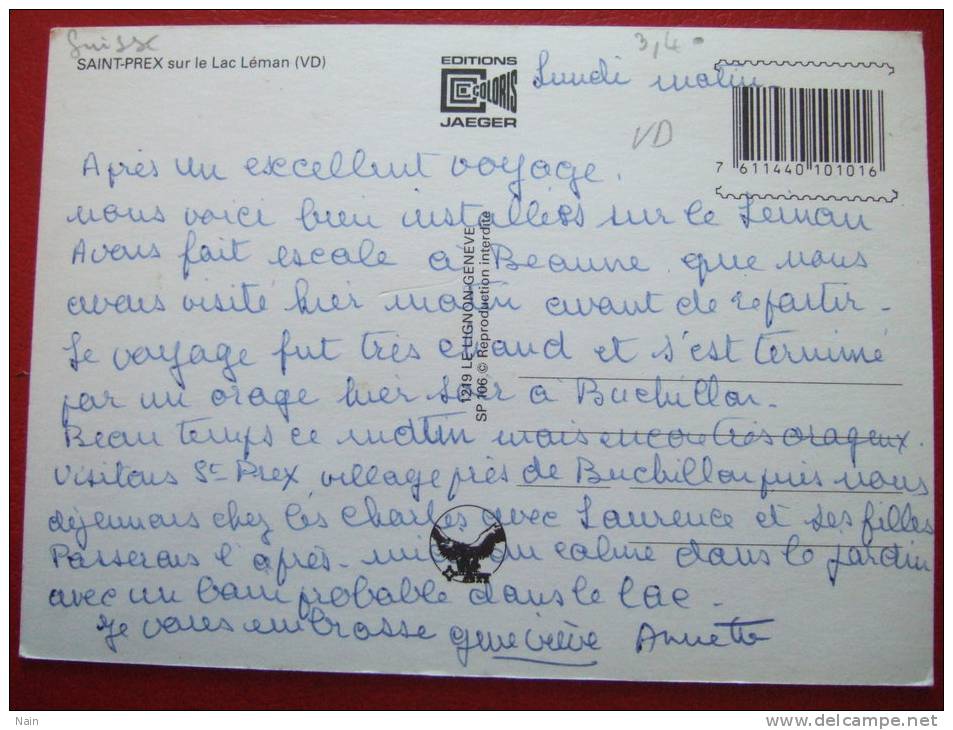 Suisse
3,40
SAINT-PREX sur le Lac Léman (VD)
EDITIONS
COLORIS
JAEGER
Lundi matin -
VD
7 611440 101016
Après un excellent voyage,
nous voici bien installées sur le Léman
Avons fait escale à Beaune que nous
avons visité hier matin avant de repartir -
Le voyage fut très chaud et s'est terminé
par un orage hier soir à Buchillon -
Beau temps ce matin mais encore très orageux.
Visitons St Prex, village près de Buchillon puis nous
déjeunons chez les Charles avec Laurence et ses filles
Passerons l'après-midi au calme dans le jardin
avec un bain probable dans le lac -
Je vous embrasse Geneviève Annette
1219 LE LIGNON-GENEVE
SP 106 © Reproduction interdite
Nain
www.delcampe.net